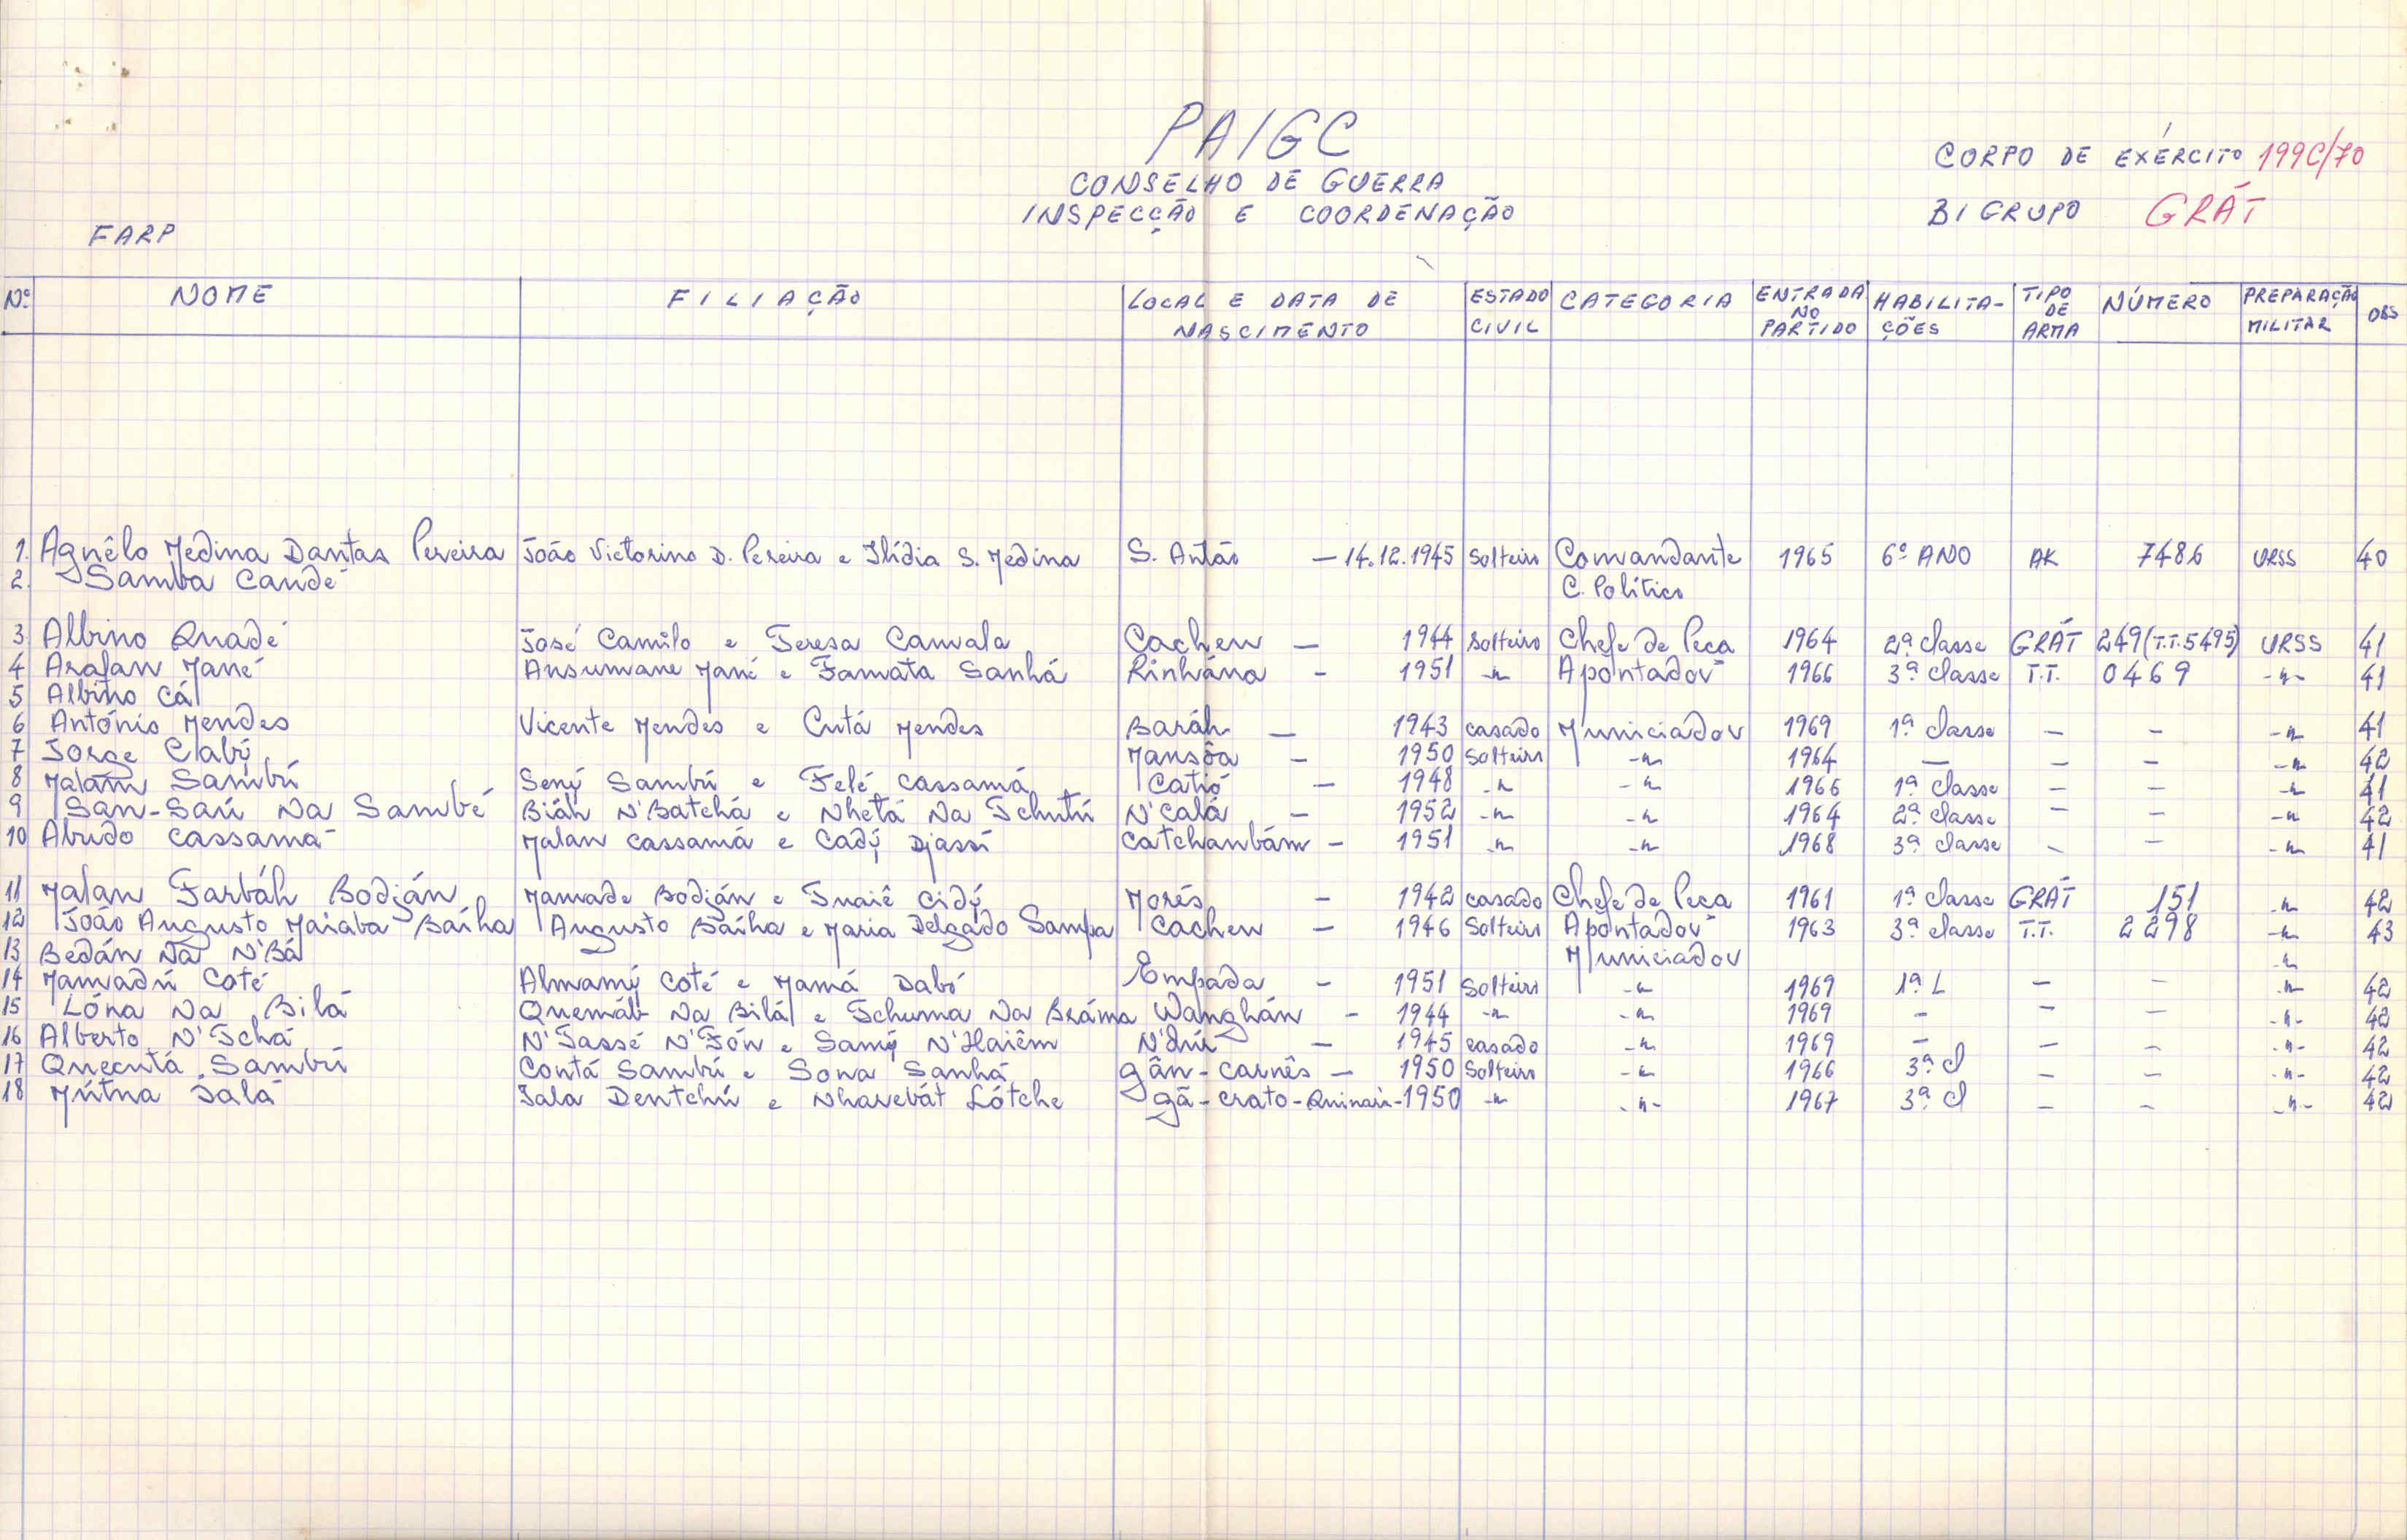 PAIGC
CONSELHO DE GUERRA
INSPECÇÃO E COORDENAÇÃO
CORPO DE EXÉRCITO 199C/70
BIGRUPO GRÁT
FARP
Nº NOME FILIAÇÃO LOCAL E DATA DE NASCIMENTO ESTADO CIVIL CATEGORIA ENTRADA NO PARTIDO HABILITA-ÇÕES TIPO DE ARMA NÚMERO PREPARAÇÃO MILITAR OBS
1. Agnêlo Medina Dantas Pereira João Victorino D. Pereira e Ilídia S. Medina S. Antão — 14.12.1945 Solteiro Comandante 1965 6º ANO AK 7486 URSS 40
2. Samba Candé C. Político
3. Albino Quadé José Camilo e Teresa Camala Cacheu — 1944 Solteiro Chefe de Peça 1964 2ª classe GRÁT 249 (T.T.5495) URSS 41
4 Arafan Mané Ansumane Mané e Famata Sanhá Rinhána - 1951 -"- Apontador 1966 3ª classe T.T. 0469 -"- 41
5 Albino Cá
6 António Mendes Vicente Mendes e Cutá Mendes Baráh — 1943 casado Municiador 1969 1ª classe — - -"- 41
7 Jorge Cabý Mansôa - 1950 Solteiro -"- 1964 — — - -"- 42
8 Malam Sambú Sený Sambú e Felé Cassamá Catió - 1948 -"- -"- 1966 1ª classe — — -"- 41
9 San-Saú Na Sambé Biáh N'Batchá e Nhetá Na Tchutú N'Calá - 1952 -"- -"- 1964 2ª classe - — -"- 42
10 Abudo Cassamá Malan Cassamá e Cadý Djassí Catchanbám - 1951 -"- -"- 1968 3ª classe - — -"- 41
11 Malan Farbáh Bodján Mamade Bodján e Fnaiê Cidý Morés - 1942 casado Chefe de Peça 1961 1ª classe GRÁT 151 -"- 42
12 João Augusto Maiaba Baíha Augusto Baíha e Maria Delgado Sampa Cacheu - 1946 Solteiro Apontador 1963 3ª classe T.T. 2298 -"- 43
13 Bedán Na N'Bá Municiador -"-
14 Mamadú Coté Almamý Coté e Mamá Dabó Empada - 1951 Solteiro -"- 1969 1ª L — — -"- 42
15 Lóna Na Bilá Quemáb Na Bilá e Tchuma Na Bráma Wanghán - 1944 -"- -"- 1969 - - - -"- 42
16 Alberto N'Tchá N'Tassé N'Fón e Samý N'Haiêm N'drú - 1945 casado -"- 1969 - — - -"- 42
17 Quecutá Sambú Contá Sambú e Sona Sanhá Gân-carnês - 1950 Solteiro -"- 1966 3ª cl — — -"- 42
18 Mútna Jalá Jala Dentchú e Nharebát Lótche gã-crato-Quinara-1950 -"- -"- 1967 3ª cl — - -"- 42